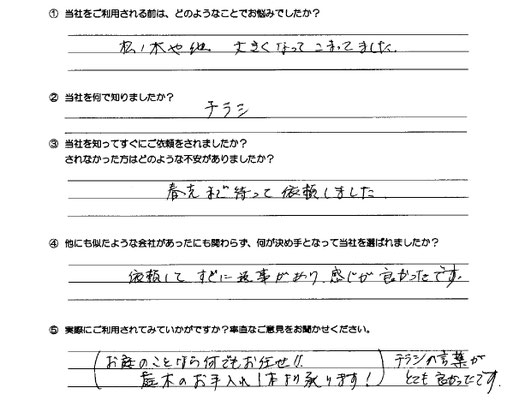 ① 当社をご利用される前は、どのようなことでお悩みでしたか？
松ノ木や他 大きくなってこまってました。
② 当社を何で知りましたか？
チラシ
③ 当社を知ってすぐにご依頼をされましたか？
されなかった方はどのような不安がありましたか？
春先まで待って依頼しました
④ 他にも似たような会社があったにも関わらず、何が決め手となって当社を選ばれましたか？
依頼してすぐに返事があり、感じが良かったです。
⑤ 実際にご利用されてみていかがですか？率直なご意見をお聞かせください。
(お庭のことなら何でもお任せ!!
庭木のお手入れ1本より承ります！)
チラシの言葉が
とても良かったです。